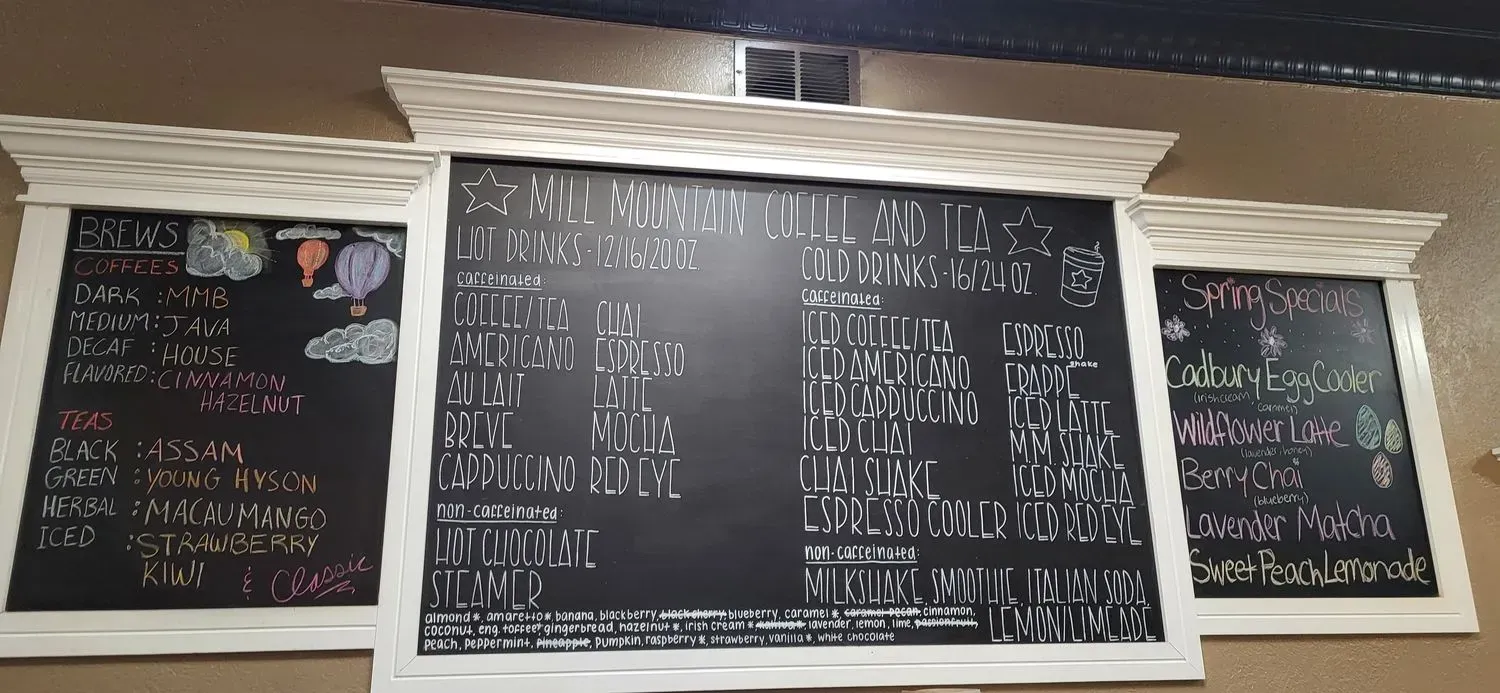 BREWS
COFFEES
DARK : MMB
MEDIUM : JAVA
DECAF : HOUSE
FLAVORED : CINNAMON
HAZELNUT
TEAS
BLACK : ASSAM
GREEN : YOUNG HYSON
HERBAL : MACAU MANGO
ICED : STRAWBERRY
KIWI & Classic
MILL MOUNTAIN COFFEE AND TEA
HOT DRINKS - 12/16/20 OZ.
caffeinated:
COFFEE/TEA CHAI
AMERICANO ESPRESSO
AU LAIT LATTE
BREVE MOCHA
CAPPUCCINO RED EYE
non-caffeinated:
HOT CHOCOLATE
STEAMER
almond*, amaretto*, banana, blackberry, black cherry, blueberry, caramel*, caramel pecan, cinnamon,
coconut, eng. toffee, gingerbread, hazelnut*, irish cream*, kahlua*, lavender, lemon, lime, passionfruit,
peach, peppermint, pineapple, pumpkin, raspberry*, strawberry, vanilla*, white chocolate
COLD DRINKS - 16/24 OZ.
caffeinated:
ICED COFFEE/TEA ESPRESSO
shake
ICED AMERICANO FRAPPE
ICED CAPPUCCINO ICED LATTE
ICED CHAI M.M. SHAKE
CHAI SHAKE ICED MOCHA
ESPRESSO COOLER ICED RED EYE
non-caffeinated:
MILKSHAKE, SMOOTHIE, ITALIAN SODA,
LEMON/LIMEADE
Spring Specials
Cadbury Egg Cooler
(irish cream, caramel)
Wildflower Latte
(lavender, honey)
Berry Chai
(blueberry)
Lavender Matcha
Sweet Peach Lemonade